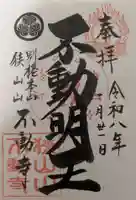 奉拝
令和 年
月廿一日
不動明王
別格本山
狭山山
不動寺